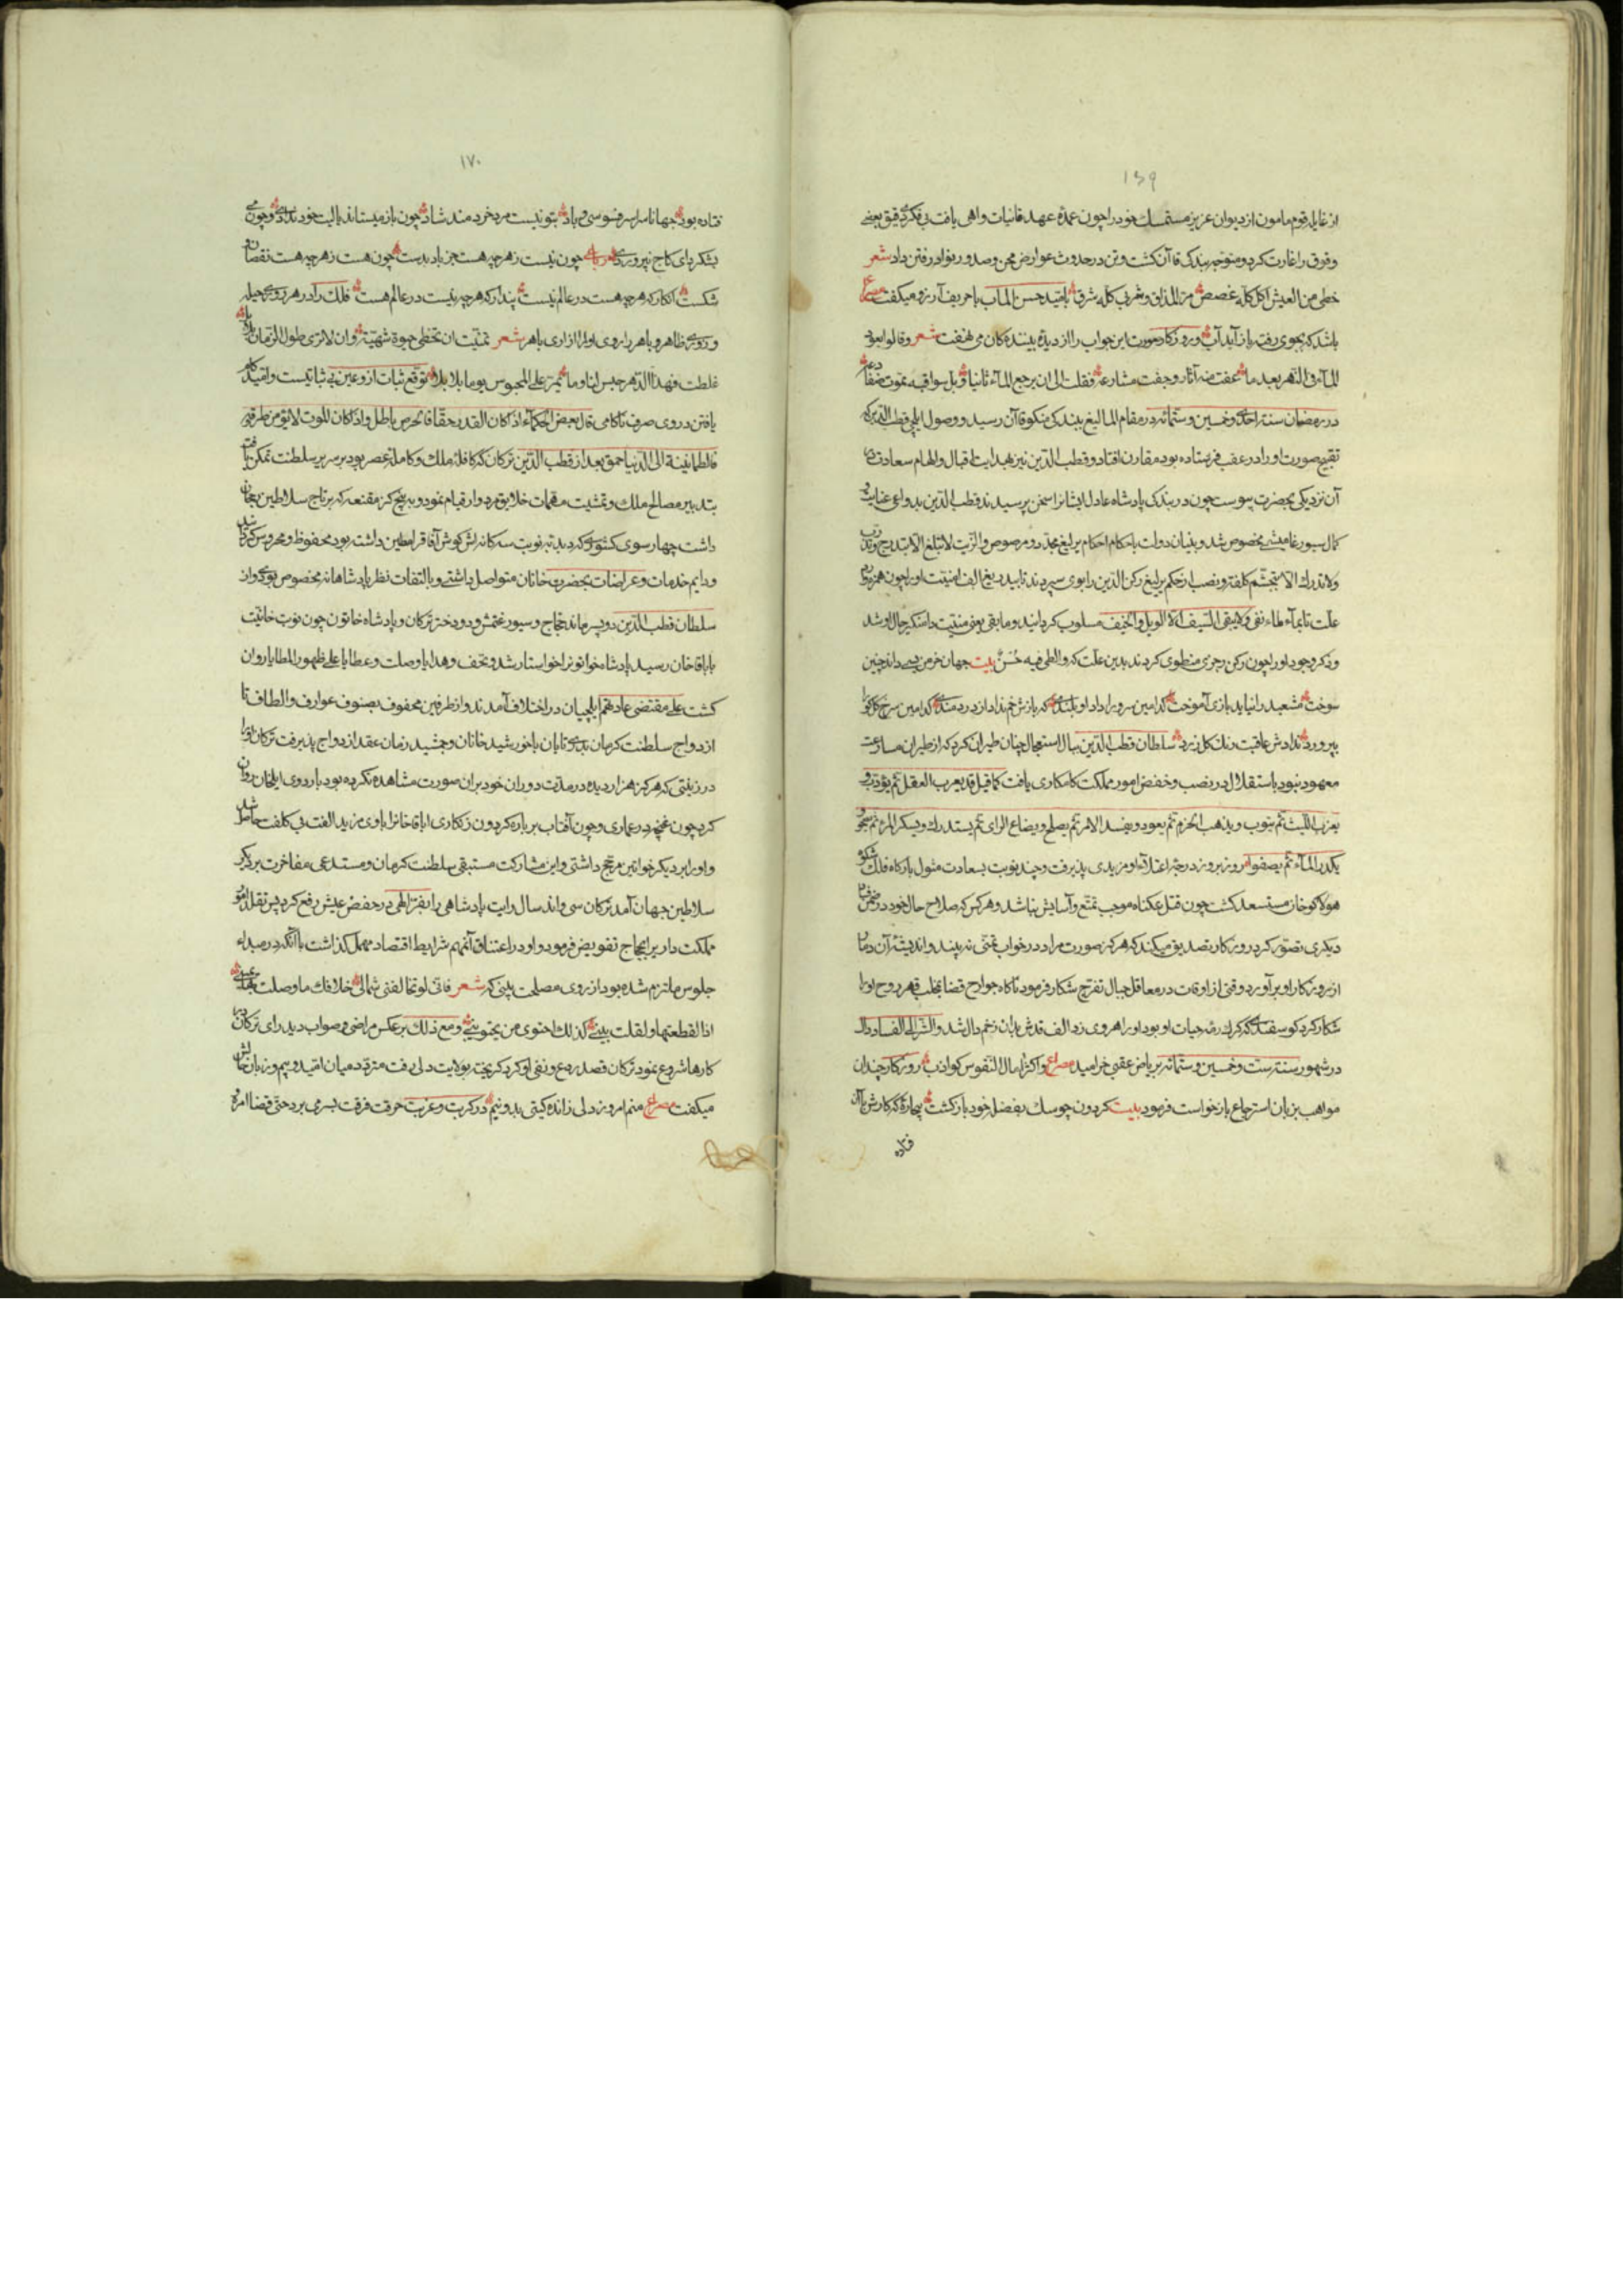 ۱۶۹
از غایله قوم مامون از دیوان عزیز مستمسك خود را چون عمدهٔ عهد فانیات واهی یافت بی فکری دقیق بعضی
وفوق را غارت کرد و متوجه بندکی قاآن کشت و تن در حدوث عوارض محن وصدور نوازل رفتن داد شعر
خطی من العیش اکل کله غصص مر المذاق وشرب کله شرق بامید حسن المآب با حریف آرزو میکفت مصراع
باشد که بجوی رفته باز آید آب و روزکار صورت این جواب را از دیدهٔ بینندکان می نهفت شعر وقالوا یعود
المآء فی النهر بعد ما عفت منه آثار وجفت مشارعه فقلت الی ان یرجع المآء ثانیا وقبل سواقیه تموت ضفادعه
در رمضان سنه احدی وخمسین وستمائه در مقام المالیغ ببندکی منکوقاآن رسید و وصول ایلچی قطب الدین که
تقبیح صورت او را در عقب فرستاده بود مقارن افتاد و قطب الدین نیز بهدایت اقبال و الهام سعادت در
آن نزدیکی بحضرت پیوست چون در بندکی پادشاه عادل ایشانرا سخن پرسیدند قطب الدین بدواعی عنایت و
کمال سیورغامیشی مخصوص شد و بنیان دولت باحکام احکام یرلیغ مجدد ومرصوص والرتب لا تبلغ الا بتدریج وتدرب
ولا تدرك الا بتجشم کلفة ونصب از حکم یرلیغ رکن الدین را بوی سپردند تا بیدریغ الف امنیت او را چون همزه
علت تا بمآء لماء نفی ولا یبقی السیف الا الویل والحیف مسلوب کردانید وما بقی یعنی منیت دامنکیر حال او شد
وذکر وجود او را چون رکن رجزی منطوی کردند بدین علت که والطی فیه حسن بیت جهان خرمن بسی داند چنین
سوخت مشعبد را نباید بازی آموخت کدامین سرو را داد او بلندی که بازش خم نداد از دردمندی کدامین سرخ کل کو را
بپرورد ندادش عاقبت رنك کل زرد سلطان قطب الدین ببال استعجال چنان طیران کرد که از طیران مسارعت
معهود نبود باستقلال در نصب وخفض امور مملکت کامکاری یافت کما قیل قد یعزب العقل ثم یؤوب و
یعزب اللیث ثم یتوب ویذهب الحزم ثم یعود ویفسد الامر ثم یصلح ویضاع الرای ثم یستدرك ویسکر المرء ثم یصحو و
یکدر المآء ثم یصفوا روز بروز درجهٔ اعتلآء او مزیدی پذیرفت و چند نوبت بسعادت مثول بارکاه فلك شکوه
هولاکوخان مستسعد کشت چون قتل عکناه موجب تمتع و آسایش نباشد و هر کس که صلاح حال خود در ضمن فنا
دیکری تصور کرد روزکار تصدیق میکند که هرکز صورت مراد در خواب تمنی نه بیند و اندیشهٔ آن دمار
از روزکار او برآورد وقتی از اوقات در معاقل جبال تفرج شکار فرمود ناکاه جوارح قضا بمخلب قهر روح او را
شکار کرد کوسفندی که کرك رمهٔ حیات او بود او را هروی زد الف قدش بدان زخم دال شد والشر الی الفساد دال
در شهور سنه ست وخمسین وستمائه بریاض عقبی خرامید مصراع واکثر آمال النفوس کواذب روزکار چندان
مواهب بزبان استرجاع بازخواست فرمود بیت کردون چو سك بفضلهٔ خود بازکشت بیچارهٔ که کارش با آن
فتاده
۱۷۰
فتاده بود جهانا سراسر فسوسی و باد بتو نیست مرد خردمند شاد چون باز میستاند یا لیت خود ندادی و چون می
بشکر پای کاج نپروردی رباعی چون نیست زهرچه هست جز باد بدست چون هست زهرچه هست نقصان و
شکست انکار که هرچه هست در عالم نیست پندار که هرچه نیست در عالم هست فلك را در هر روزی حیله
و زوری ظاهر و باهر را روی اولاد ازاری باهر شعر تمنیت ان تحظی حیوة شهیة وان لا تری طول الزمان بلابلا
غلطت فهذا الدهر حبس لنا وما یمر علی المحبوس یوما بلا بلا توقع ثبات ازو عین بی ثباتیست و امید کام
یافتن در وی صرف ناکامی قال بعض الحکمآء اذا کان القدر حقا فالحرص باطل واذا کان الموت لا یؤمن طرقه
فالطمانینة الی الدنیا حمق بعد از قطب الدین ترکان که کافلهٔ ملك و کاملهٔ عصر بود بر سریر سلطنت تمکن یافته
بتدبیر مصالح ملك و تمشیت مهمات خلایق مردوار قیام نمود و به پنج کز مقنعه که بر تاج سلاطین رجحان
داشت چهار سوی کشوری که دبدبهٔ نوبت سه کانه اش کوش آفاق را طنین داشته بود محفوظ و محروس کردانید
و دایم خدمات و عراضات بحضرت خانان متواصل داشتی و بالتفات نظر پادشاهانه مخصوص بودی و از
سلطان قطب الدین دو پسر ماند حجاج و سیورغتمش و دو دختر ترکان و پادشاه خاتون چون نوبت خانیت
باباقاخان رسید پادشاه خاتون را خواستار شد و تحف و هدایا وصلت و عطایا علی ظهور المطایا روان
کشت علی مقتضی عادتهم ایلچیان در اختلاف آمدند و از طرفین محفوف بصنوف عوارف و الطاف تا
ازدواج سلطنت کرمان بدری تابان با خورشید خانان و جمشید زمان عقد ازدواج پذیرفت ترکان او را
در زینتی که هرکز هزار دیده در مدت دوران خود بران صورت مشاهده نکرده بود باردوی ایلخان روان
کرد چون غنچه در عماری و چون آفتاب بر بارهٔ کردون زنکاری اباقاخانرا باوی مزید الفت بی کلفت حاصل شد
و او را بر دیکر خواتین مرجح داشتی و این مشارکت مستبقی سلطنت کرمان و مستدعی مفاخرت بر دیکر
سلاطین جهان آمد ترکان سی و اند سال رایت پادشاهی را در خفض عیش رفع کرد پس تقلد امور
مملکت داری بحجاج تفویض فرمود و او در اعتناق آن مهم شرایط اقتصاد مهمل کذاشت با آنکه در مبداء
جلوس ملتزم شده بود از روی مصلحت بینی که شعر فانی لو تخالفنی شمالی خلافك ما وصلت بها یمینی
اذا لقطعتها ولقلت بینی کذلك اجتوی من یجتوینی ومع ذلك برعکس مراضی و صواب دید رای ترکان در
کارها شروع نمود ترکان قصد ردع و نفی او کرد کریخته بولایت دلی رفت متردد میان امید و بیم و زبان حالش
میکفت مصراع منم امروز دلی زاندهٔ کیتی بدو نیم در کربت و غربت حرقت فرقت بسر می برد حتی قضا امره